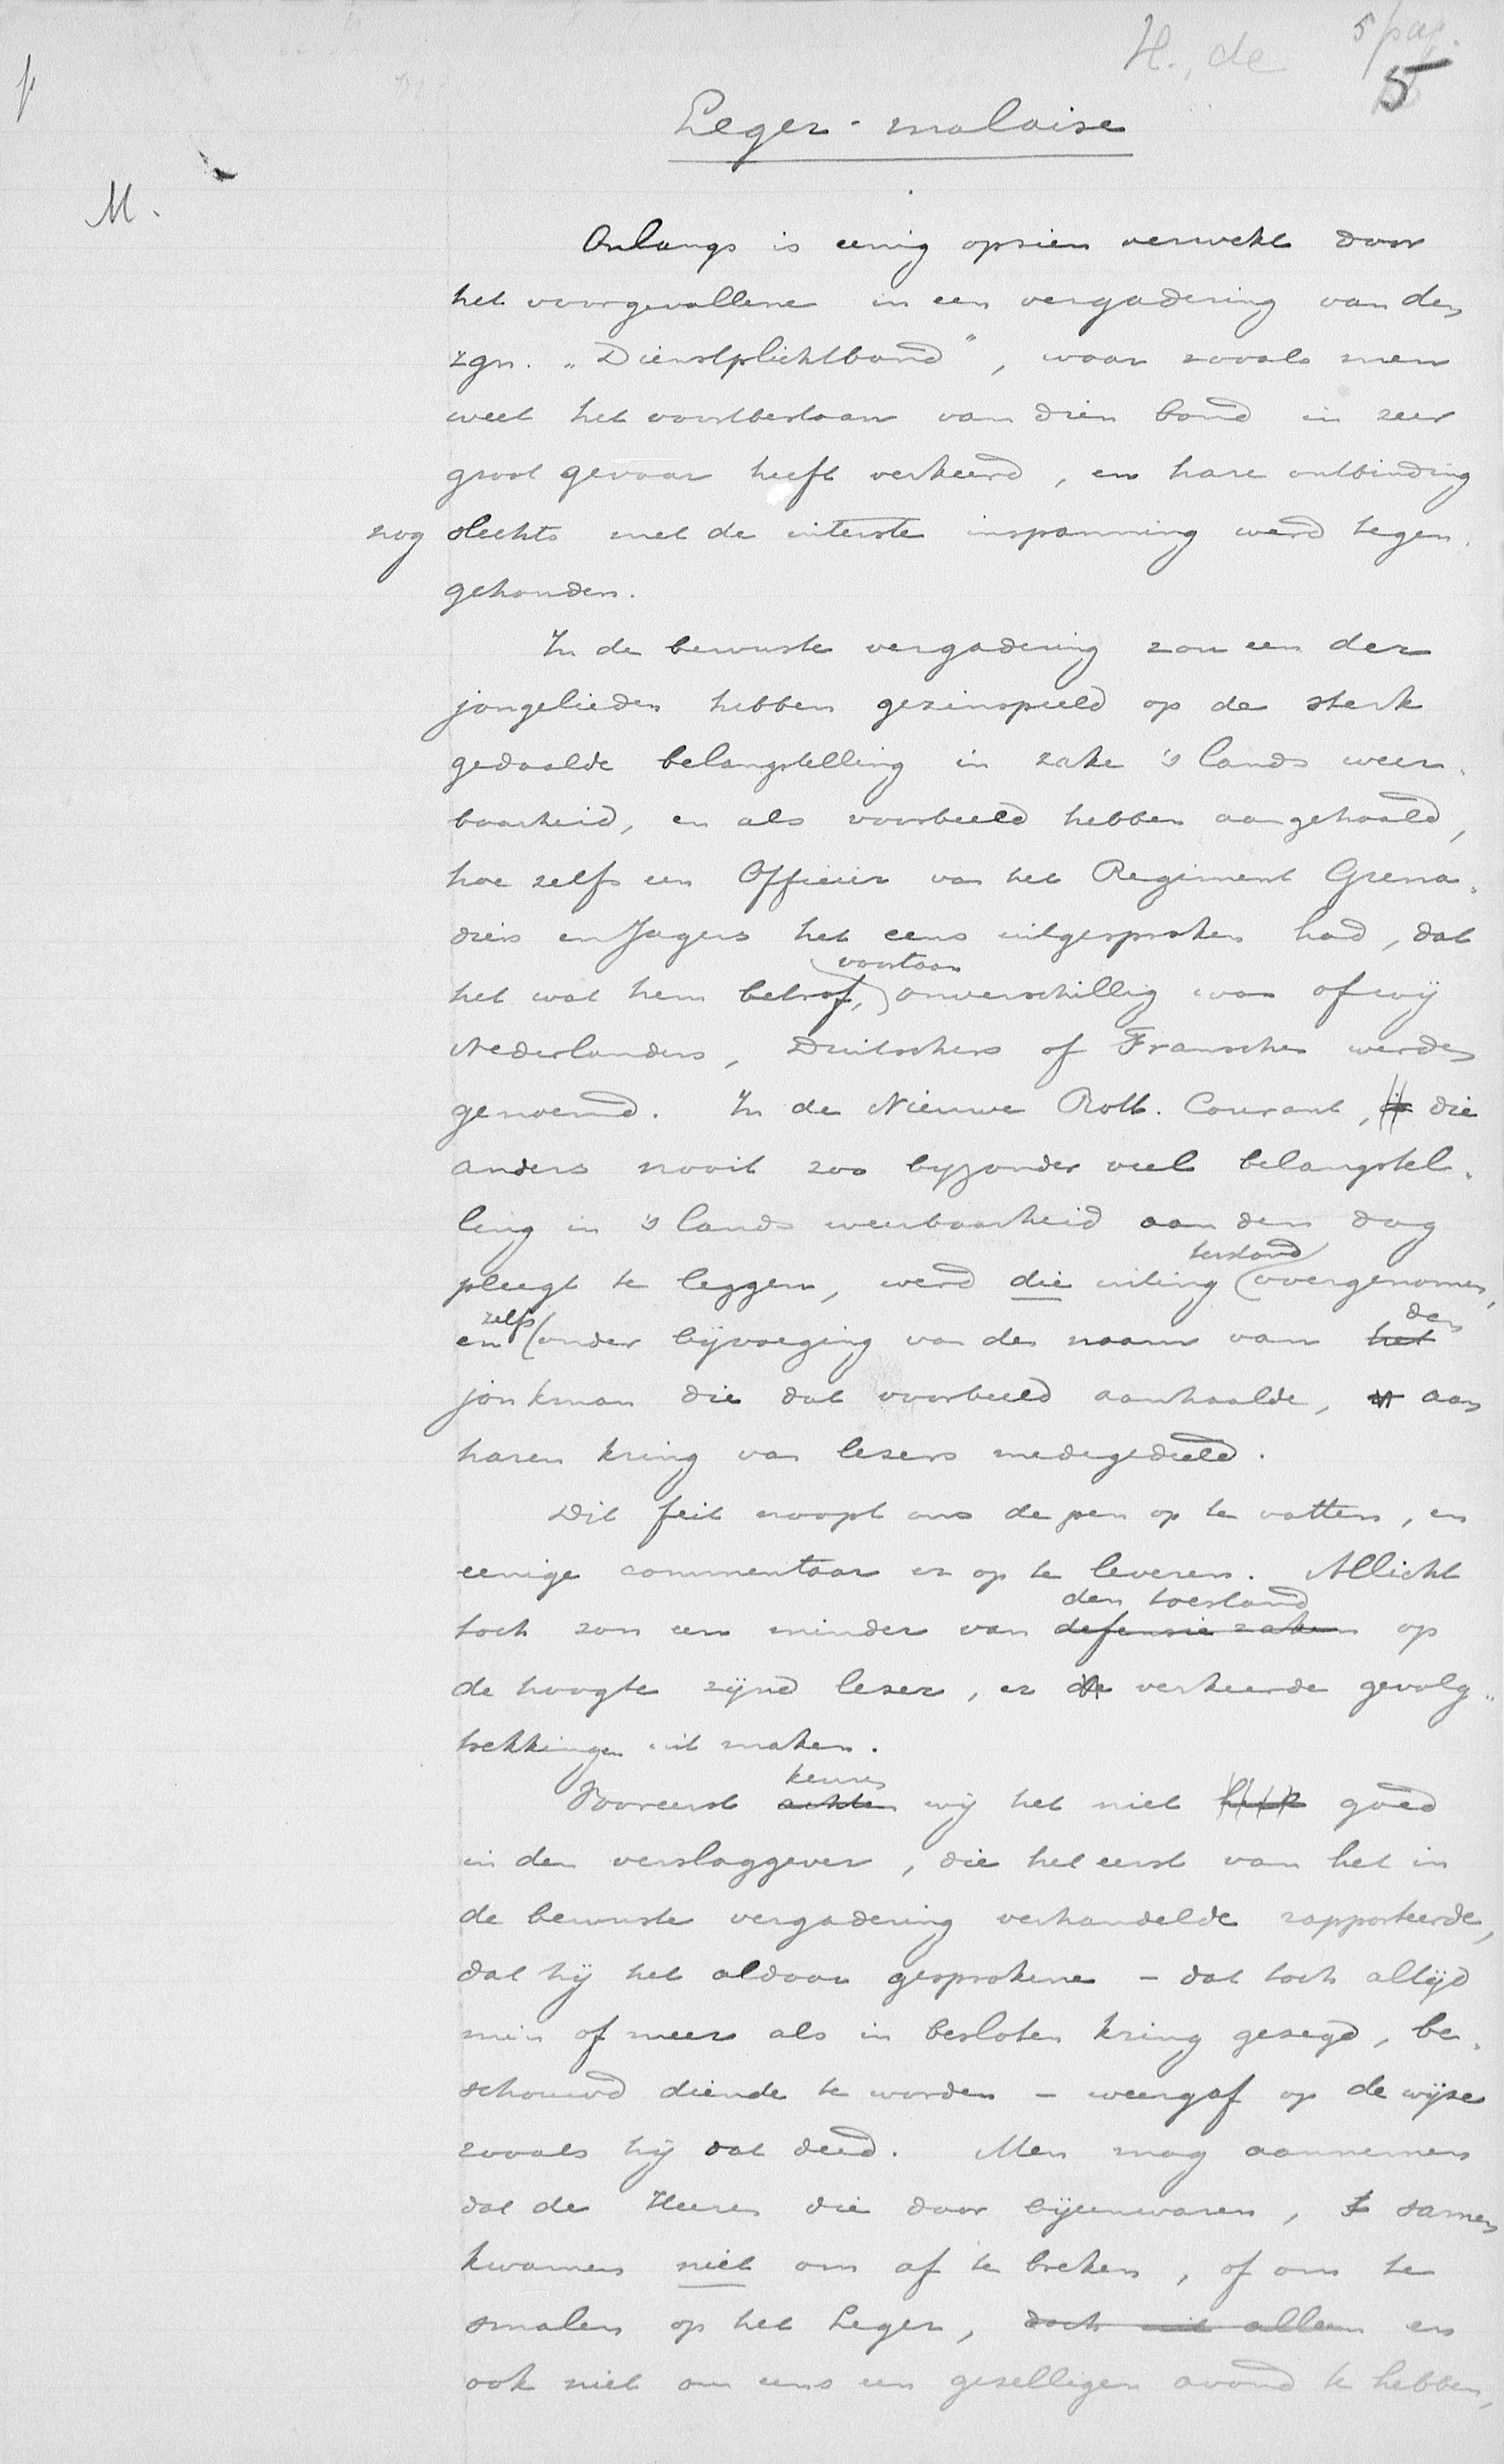 H., de 5 pag.
5
Leger-malaise
M.
Onlangs is eenig opzien verwekt door
het voorgevallene in een vergadering van den
zgn. „Dienstplichtbond", waar zooals men
weet het voortbestaan van dien bond in zeer
groot gevaar heeft verkeerd, en hare ontbinding
nog slechts met de uiterste inspanning werd tegen-
gehouden.
In de bewuste vergadering zou een der
jongelieden hebben gezinspeeld op de sterk
gedaalde belangstelling in zake 's lands weer-
baarheid, en als voorbeeld hebben aangehaald,
hoe zelfs een Officier van het Regiment Grena-
diers en Jagers het eens uitgesproken had, dat
voortaan
het wat hem betrof, onverschillig was of wij
Nederlanders, Duitschers of Franschen werden
genoemd. In de Nieuwe Rott. Courant, die
anders nooit zoo byzonder veel belangstel-
ling in 's lands weerbaarheid aan den dag
terstond
pleegt te leggen, werd die uiting overgenomen,
zelfs den
en onder bijvoeging van den naam van het
jonkman die dat voorbeeld aanhaalde, aan
haren kring van lezers medegedeeld.
Dit feit noopt ons de pen op te vatten, en
eenige commentaar er op te leveren. Allicht
den toestand
toch zou een minder van defensie zaken op
de hoogte zijnd lezer, er de verkeerde gevolg-
trekkingen uit maken.
keuren
Vooreerst achten wij het niet goed
in den verslaggever, die het eerst van het in
de bewuste vergadering verhandelde rapporteerde,
dat hij het aldaar gesprokene - dat toch altijd
min of meer als in besloten kring gezegd, be-
schouwd diende te worden - weergaf op de wijze
zooals hij dat deed. Men mag aannemen
dat de Heeren die daar bijeenwaren, samen
kwamen niet om af te breken, of om te
smalen op het Leger, doch niet alleen en
ook niet om eens een gezelligen avond te hebben,